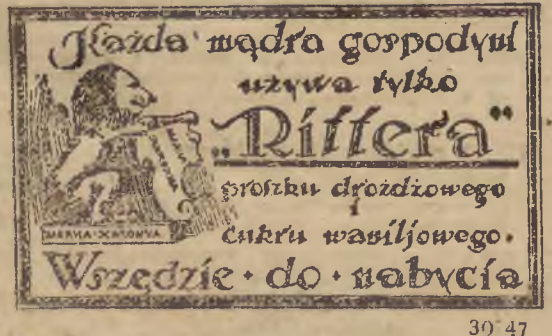 Każda mądra gospodyni
używa tylko
„Rittera"
proszku drożdżowego
i
cukru waniljowego.
MARKA OCHRONNA
Wszędzie · do · nabycia
30 47